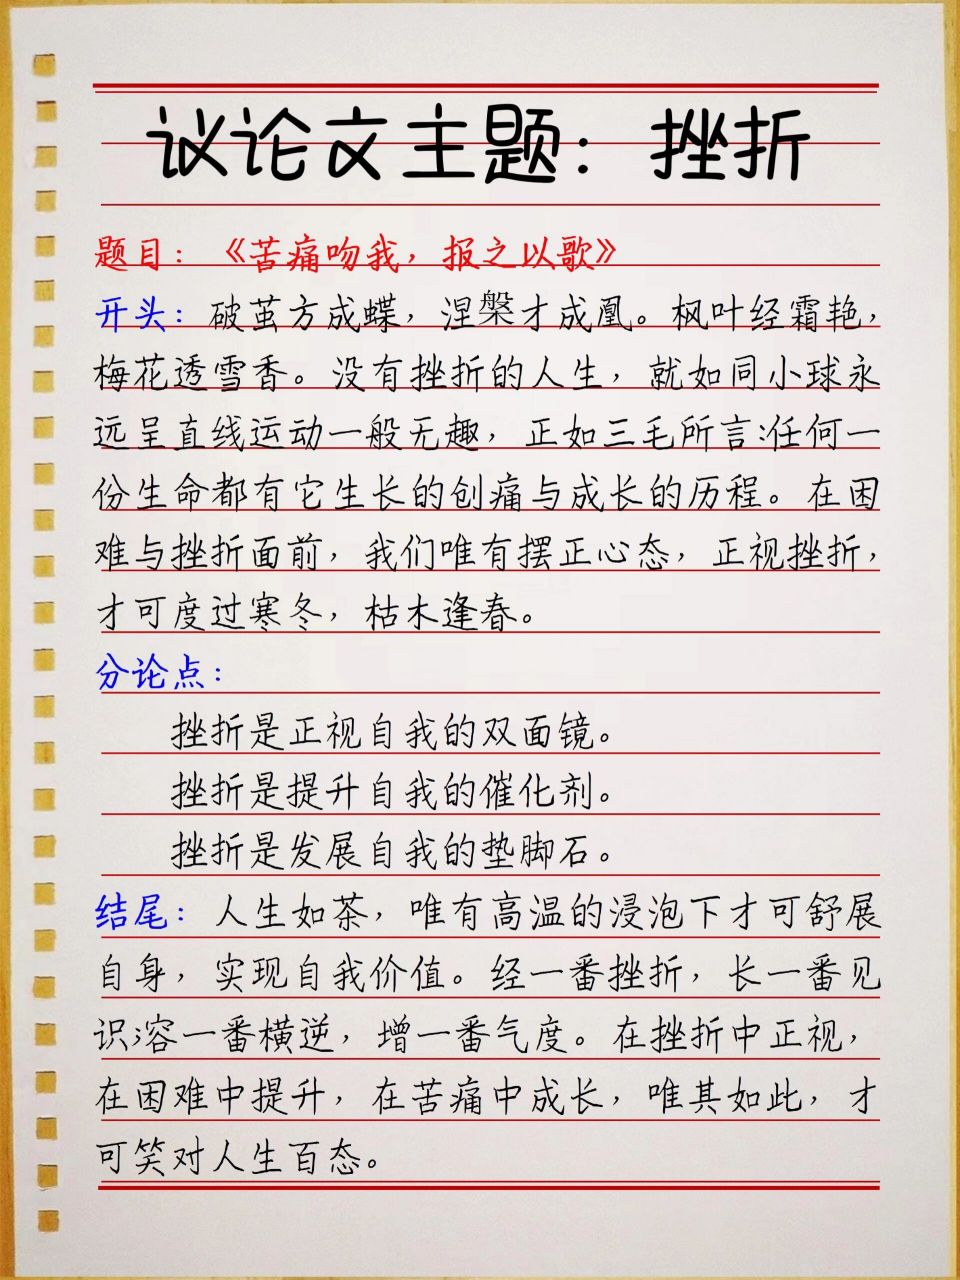 议论文主题：挫折
题目：《苦痛吻我，报之以歌》
开头：破茧方成蝶，涅槃才成凰。枫叶经霜艳，
梅花透雪香。没有挫折的人生，就如同小球永
远呈直线运动一般无趣，正如三毛所言:任何一
份生命都有它生长的创痛与成长的历程。在困
难与挫折面前，我们唯有摆正心态，正视挫折，
才可度过寒冬，枯木逢春。
分论点：
挫折是正视自我的双面镜。
挫折是提升自我的催化剂。
挫折是发展自我的垫脚石。
结尾：人生如茶，唯有高温的浸泡下才可舒展
自身，实现自我价值。经一番挫折，长一番见
识;容一番横逆，增一番气度。在挫折中正视，
在困难中提升，在苦痛中成长，唯其如此，才
可笑对人生百态。